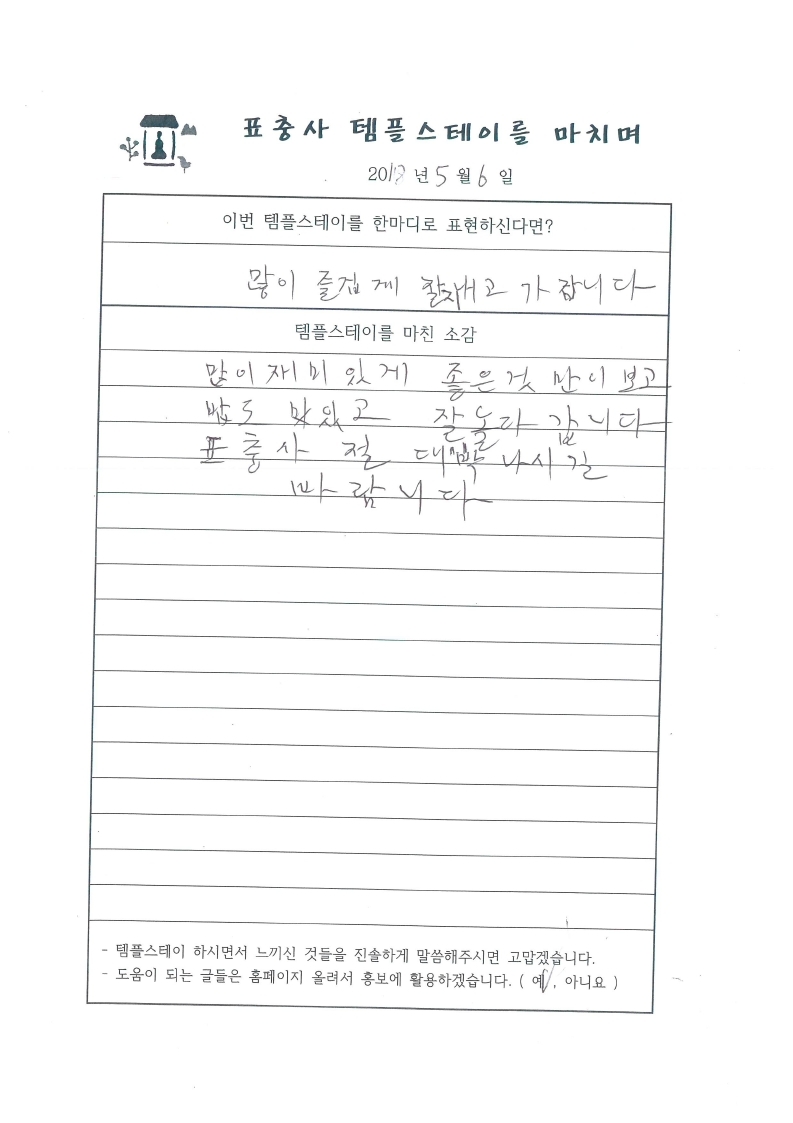 표충사 템플스테이를 마치며
2018년 5월 6일
이번 템플스테이를 한마디로 표현하신다면?
많이 즐겁게 가 갑니다
템플스테이를 마친 소감
많이 재미있게 좋은것 만이 보고
밥도 맛있고 잘놀다 갑니다
표충사 절 대박 나시길
바랍니다
- 템플스테이 하시면서 느끼신 것들을 진솔하게 말씀해주시면 고맙겠습니다.
- 도움이 되는 글들은 홈페이지 올려서 홍보에 활용하겠습니다. ( 예, 아니요 )